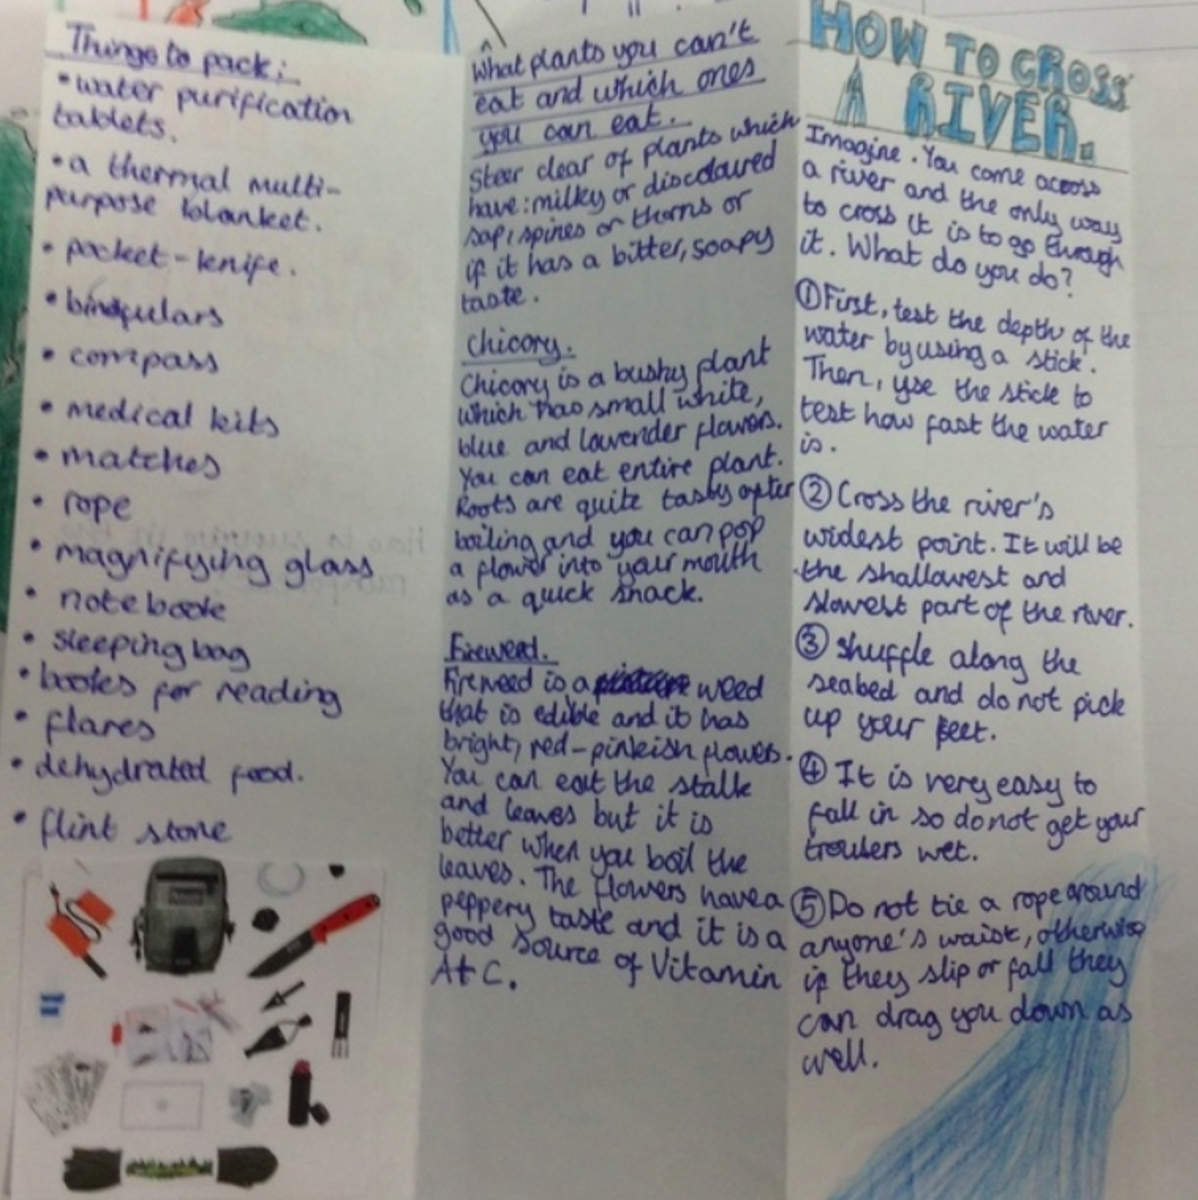 Things to pack:
• water purification
tablets.
• a thermal multi-
purpose blanket.
• pocket-knife.
• binoqulars
• compass
• medical kits
• matches
• rope
• magnifying glass
• notebook
• sleeping bag
• books for reading
• flares
• dehydrated food.
• flint stone
What plants you can't
eat and which ones
you can eat.
Steer clear of plants which
have: milky or discoloured
sap, spines or thorns or
if it has a bitter, soapy
taste.
Chicory.
Chicory is a bushy plant
which has small white,
blue and lavender flowers.
You can eat entire plant.
Roots are quite tasty after
boiling and you can pop
a flower into your mouth
as a quick snack.
Fireweed.
Fireweed is a weed
that is edible and it has
bright, red-pinkish flowers.
You can eat the stalk
and leaves but it is
better when you boil the
leaves. The flowers have a
peppery taste and it is a
good source of Vitamin
A + C.
HOW TO CROSS
A RIVER.
Imagine. You come across
a river and the only way
to cross it is to go through
it. What do you do?
① First, test the depth of the
water by using a stick.
Then, use the stick to
test how fast the water
is.
② Cross the river's
widest point. It will be
the shallowest and
slowest part of the river.
③ shuffle along the
seabed and do not pick
up your feet.
④ It is very easy to
fall in so do not get your
trousers wet.
⑤ Do not tie a rope around
anyone's waist, otherwise
if they slip or fall they
can drag you down as
well.